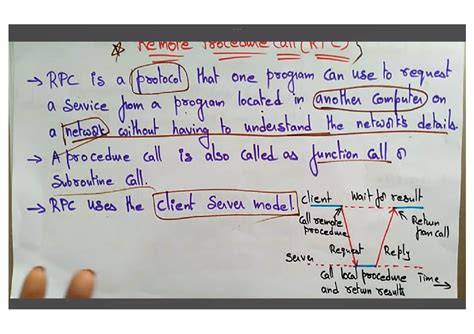 * Remote Procedure Call (RPC)
→ RPC is a protocol that one program can use to request
a Service from a program located in another Computer on
a network without having to understand the network's details.
→ A procedure call is also called as function call or
Subroutine call.
→ RPC uses the Client Server model
Client Wait for result
Call remote procedure
Return from call
Request Reply
Server
call local procedure Time →
and return results